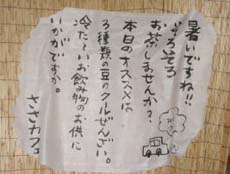 暑いですね!!
そろそろ
お茶しませんか?
本日のオススメは
3種類の豆のクルぜんざい。
冷た〜いお飲み物のお供に
いかがですか。
ささカフェ